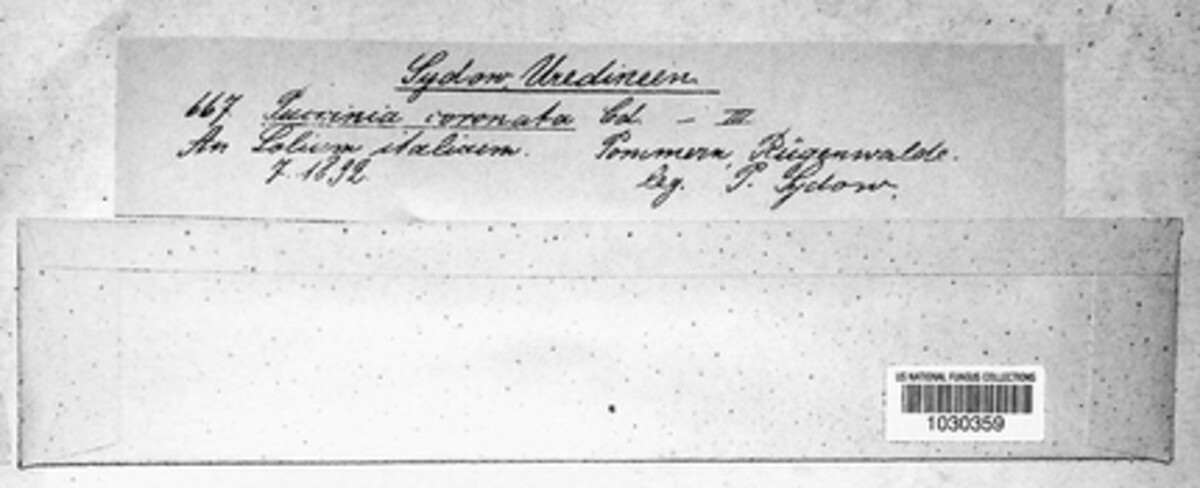 Sydow, Uredineen.
667 Puccinia coronata Cd. – III
An Lolium italicum. Pommern, Rügenwalde.
7. 1892 leg. P. Sydow.
US NATIONAL FUNGUS COLLECTIONS
1030359